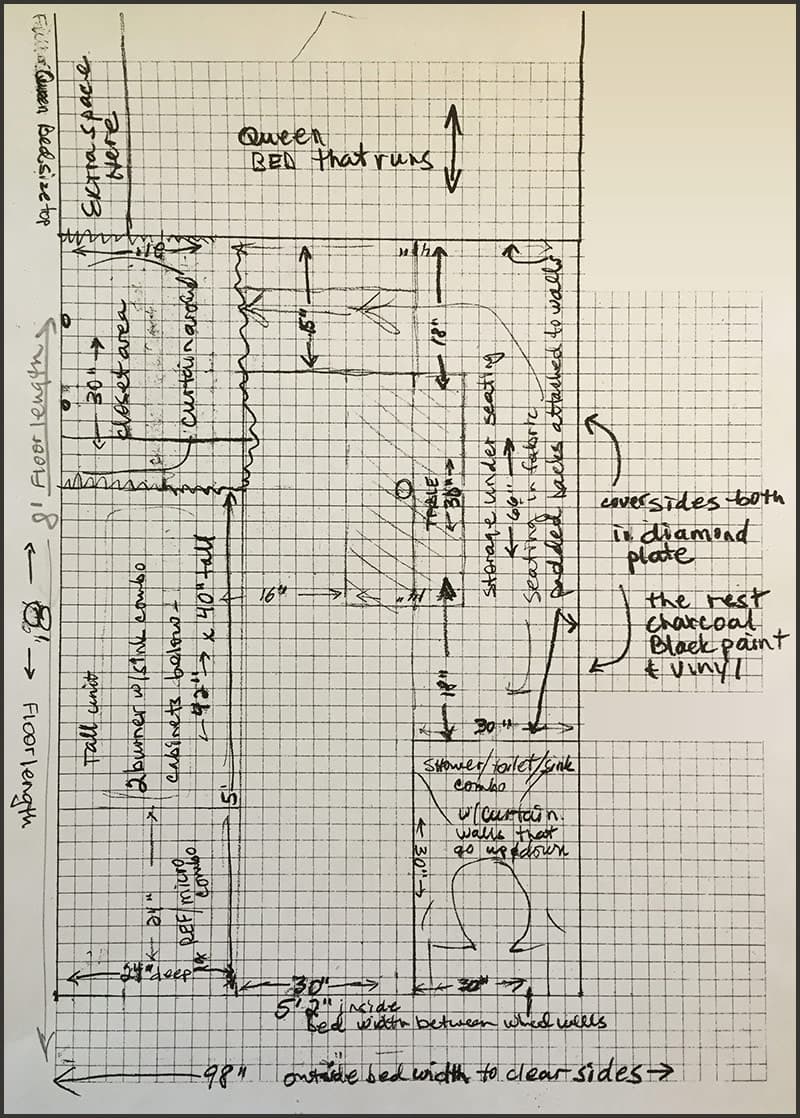 Queen Bed size top
Extra space
Here
Queen
BED that runs
4"
15"
18"
30"
closet area
Curtain around
8' Floor length
8' Floor length
Storage under seating
66"
Seating in fabric
padded backs attached to walls
TABLE
36"
16"
14"
18"
30"
cover sides both
in diamond
plate
the rest
charcoal
Black paint
& vinyl
Tall unit
2 burner w/sink combo
cabinets below-
42" x 40" tall
5'
24"
REF/micro
combo
24" deep
Shower/toilet/sink
combo
w/curtain
walls that
go up & down
30"
30"
30"
5' 2" inside
Bed width between wheel wells
98" outside bed width to clear sides